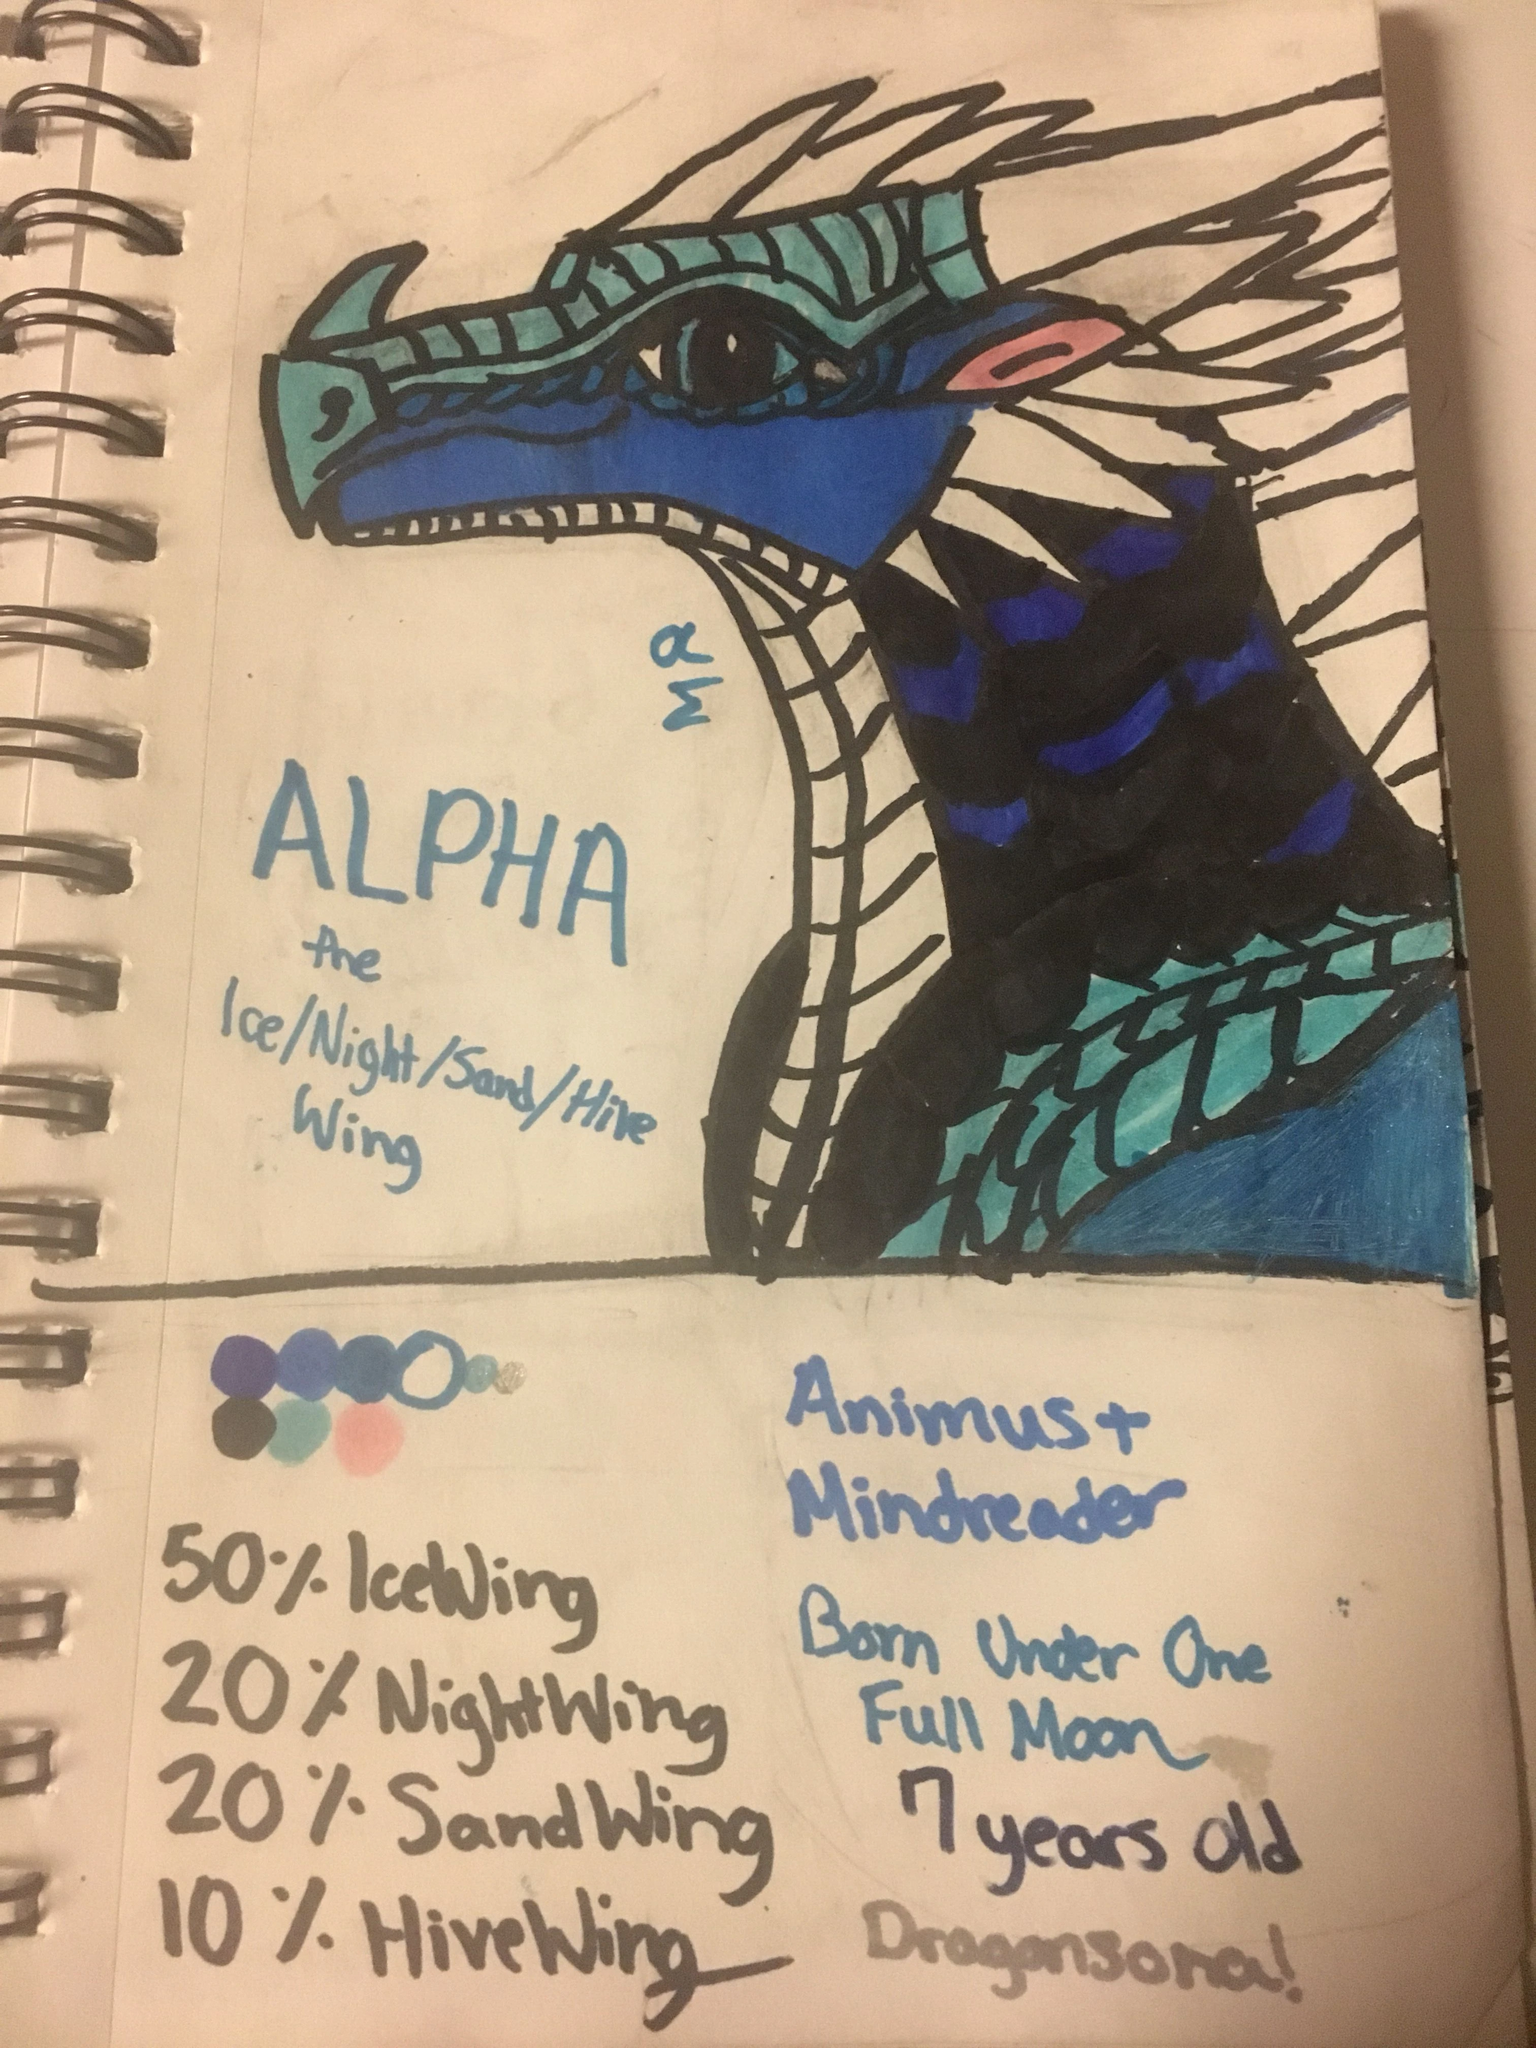 α
Σ
ALPHA
the
Ice/Night/Sand/Hive
Wing
Animus+
Mindreader
50% IceWing
20% NightWing
20% SandWing
10% HiveWing
Born Under One
Full Moon
7 years old
Dragonsona!